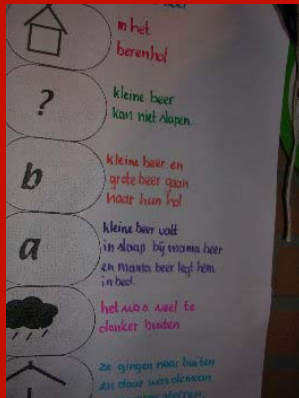 in het
berenhol
?
kleine beer
kan niet slapen.
b
kleine beer en
grote beer gaan
naar hun hol
a
kleine beer valt
in slaap bij mama beer
en mama beer legt hem
in bed.
het was veel te
donker buiten
ze gingen naar buiten
en daar was de maan